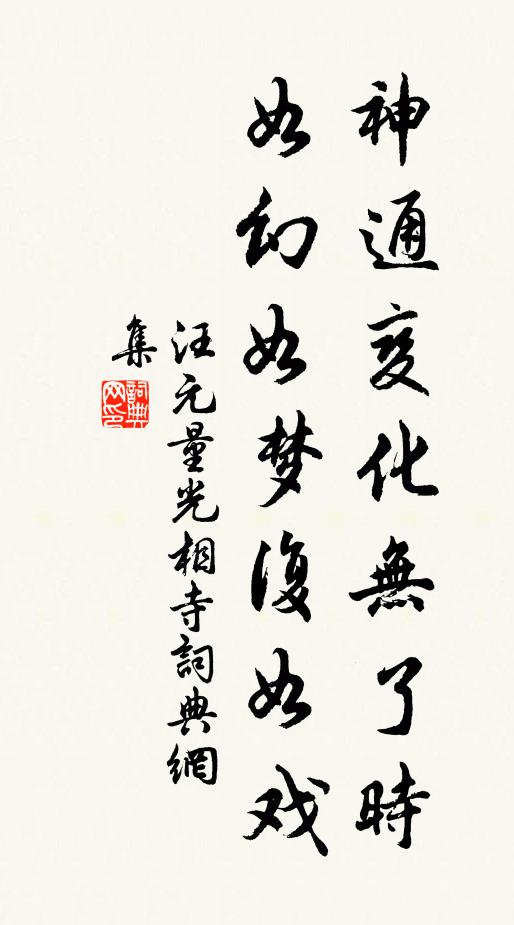 神通变化無了時
如幻如梦復如戏
汪元量光相寺詞典網
集
詞典网印